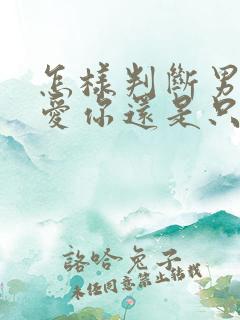 怎樣判斷男
愛你還是只
諮哈兔子
未任同意禁止轉載